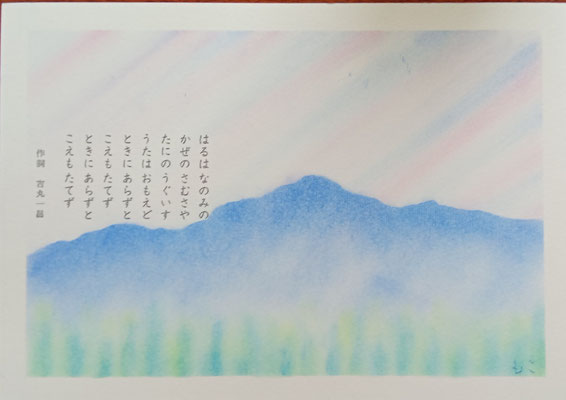 はるは なのみの
かぜの さむさや
たにの うぐいす
うたは おもえど
ときに あらずと
こえも たてず
ときに あらずと
こえも たてず
作詞 吉丸一昌